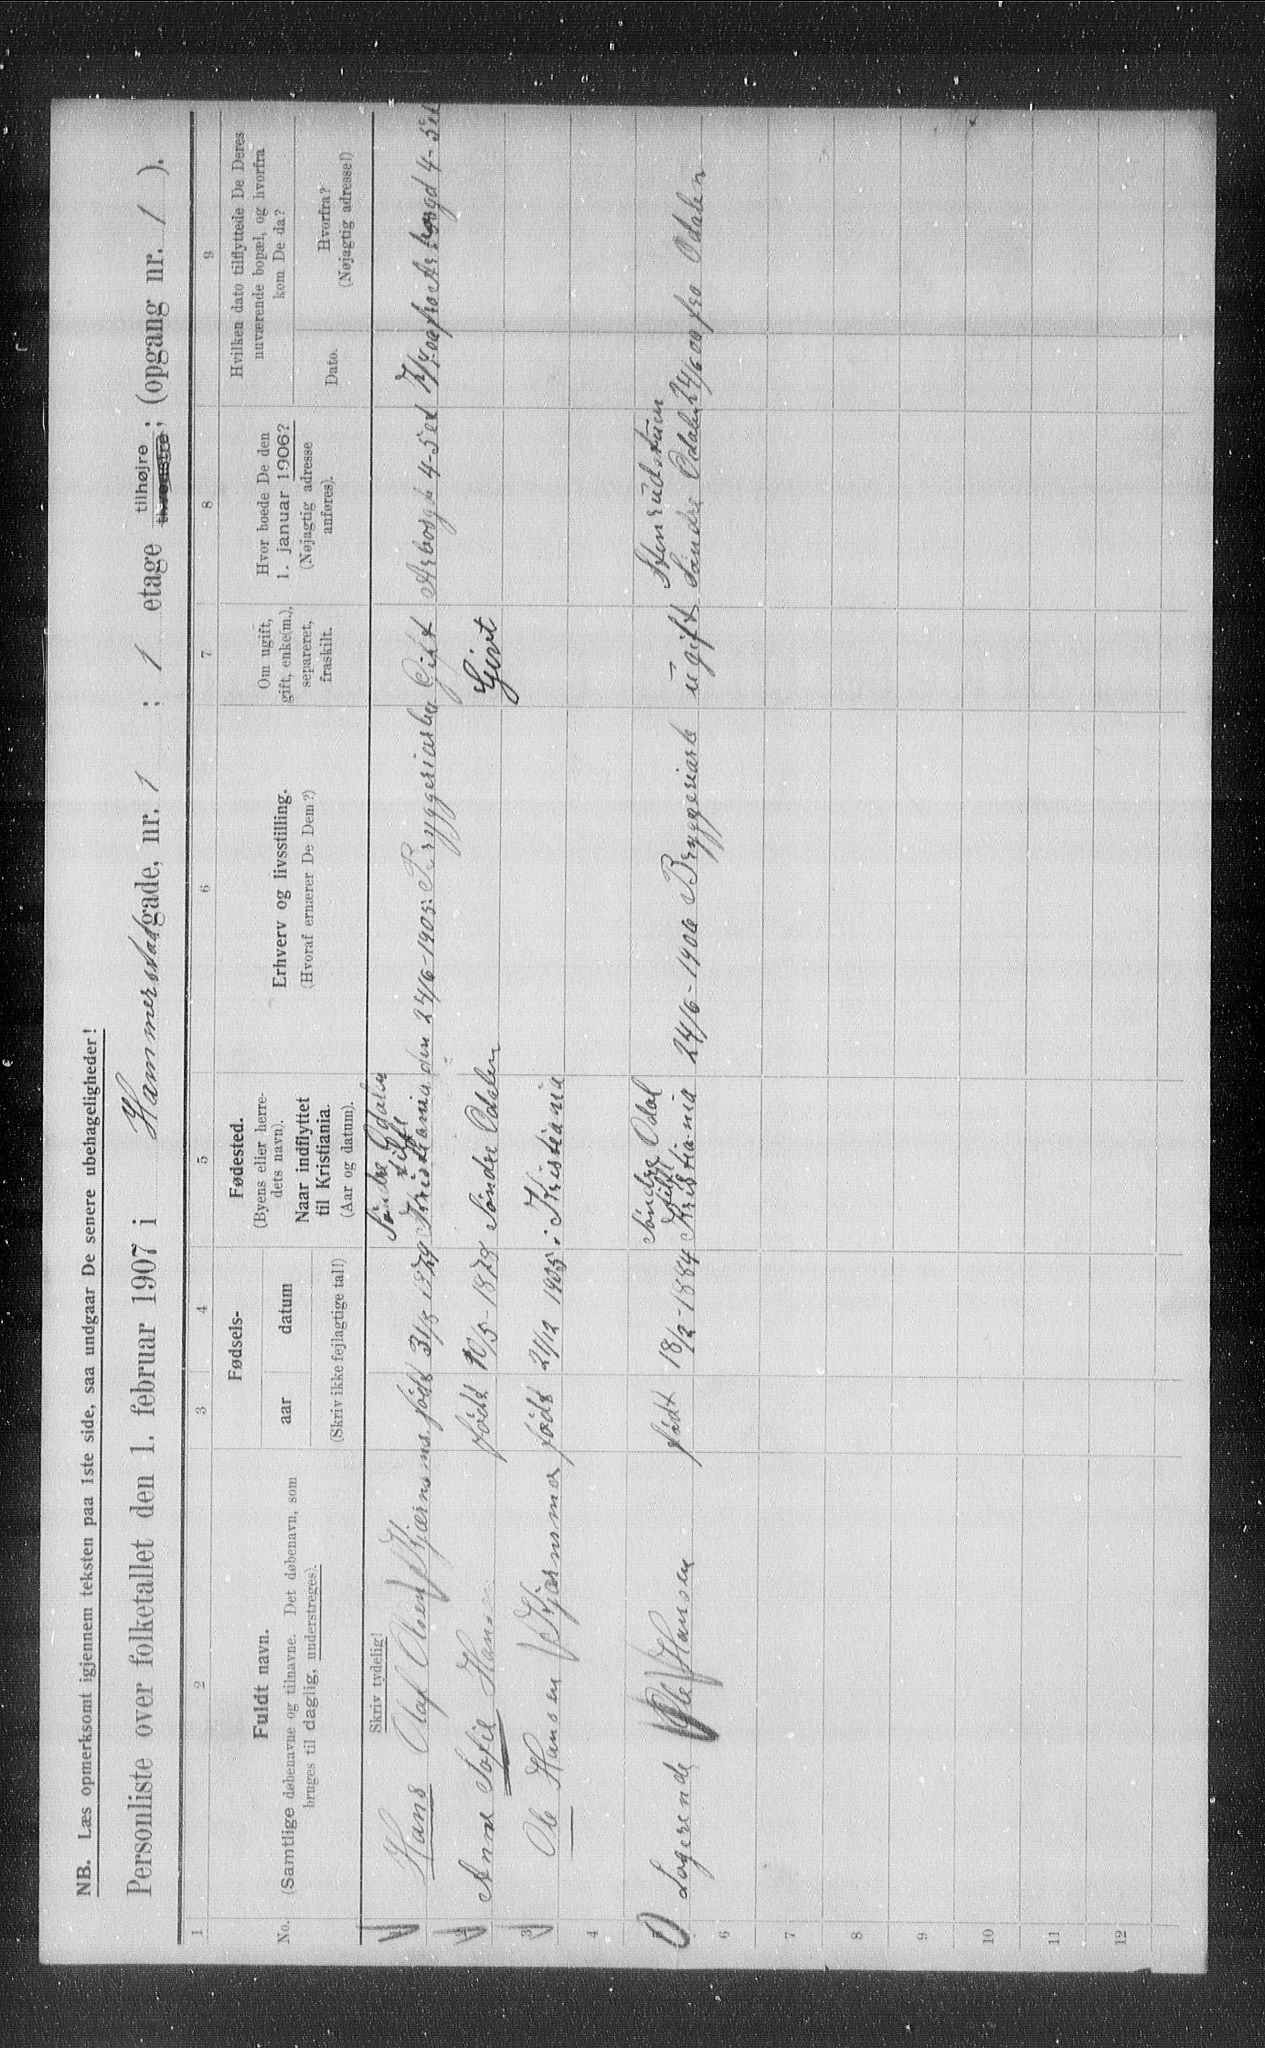 NB. Læs opmerksomt igjennem teksten paa 1ste side, saa undgaar De senere ubehageligheder!
Personliste over folketallet den 1. februar 1907 i Hammerstadgade, nr. 1 : 1 etage tilhøjre ; (opgang nr. 1 ).
1 2 3 4 5 6 7 8 9
No.
Fuldt navn.
(Samtlige døbenavne og tilnavne. Det døbenavn, som
bruges til daglig, understreges).
Fødsels-
aar datum
(Skriv ikke fejlagtige tal!)
Fødested.
(Byens eller herre-
dets navn).
Naar indflyttet
til Kristiania.
(Aar og datum).
Erhverv og livsstilling.
(Hvoraf ernærer De Dem?)
Om ugift,
gift, enke(m.),
separeret,
fraskilt.
Hvor boede De den
1. januar 1906?
(Nøjagtig adresse
anføres).
Hvilken dato tilflyttede De Deres
nuværende bopæl, og hvorfra
kom De da?
Dato.
Hvorfra?
(Nøjagtig adresse!)
Skriv tydelig!
Søndre Odalen
Hans Olaf Olsen født 31/8 1879 Kristiania den 24/6-1905 Bryggeriarb Gift Arbosgt 4-5et fra Arbosgd 4-5et
Anne Sofie Hansen født 10/5-1878 Søndre Odalen Givt
3 Ole Hansen født 21/12 1905 i Kristiania
4
Søndre Odal Stenrudstuen
Logerende Ole Hansen født 18/2-1884 Kristiania 24/6-1906 Bryggeriarb ugift Søndre Odalen 24/6 06 fra Odalen
6
7
8
9
10
11
12